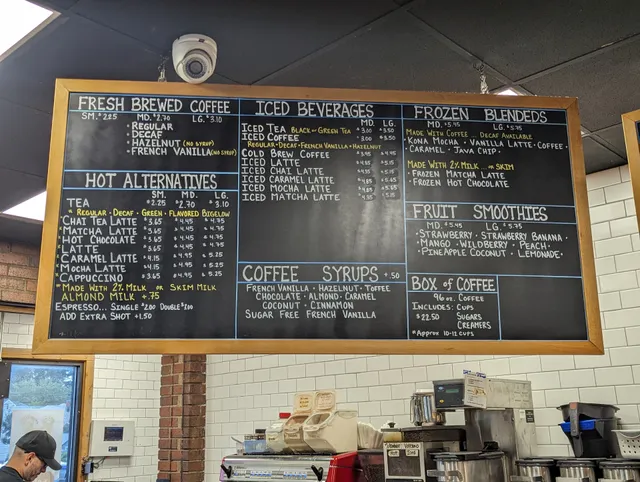 FRESH BREWED COFFEE
SM. $2.25 MD. $2.70 LG. $3.10
• REGULAR
• DECAF
• HAZELNUT (NO SYRUP)
• FRENCH VANILLA (NO SYRUP)
HOT ALTERNATIVES
SM. MD. LG.
TEA $2.25 $2.70 $3.10
* REGULAR · DECAF · GREEN · FLAVORED BIGELOW
CHAI TEA LATTE $3.65 $4.45 $4.75
MATCHA LATTE $3.65 $4.45 $4.75
HOT CHOCOLATE $3.65 $4.45 $4.75
LATTE $3.65 $4.45 $4.75
CARAMEL LATTE $4.15 $4.95 $5.25
MOCHA LATTE $4.15 $4.95 $5.25
CAPPUCCINO $3.65 $4.95 $5.25
*MADE WITH 2% MILK OR SKIM MILK
ALMOND MILK +.75
ESPRESSO... SINGLE $2.00 DOUBLE $3.00
ADD EXTRA SHOT +1.50
ICED BEVERAGES
MD. LG.
ICED TEA BLACK OR GREEN TEA $3.00 $3.50
ICED COFFEE $3.00 $3.50
REGULAR · DECAF · FRENCH VANILLA · HAZELNUT
COLD BREW COFFEE
ICED LATTE
ICED CHAI LATTE
ICED CARAMEL LATTE
ICED MOCHA LATTE
ICED MATCHA LATTE
COFFEE SYRUPS +.50
FRENCH VANILLA · HAZELNUT · TOFFEE
CHOCOLATE · ALMOND · CARAMEL
COCONUT · CINNAMON
SUGAR FREE FRENCH VANILLA
FROZEN BLENDEDS
MD. $5.45 LG. $5.75
MADE WITH COFFEE... DECAF AVAILABLE
· KONA MOCHA · VANILLA LATTE · COFFEE
· CARAMEL · JAVA CHIP ·
MADE WITH 2% MILK ... OR SKIM
· FROZEN MATCHA LATTE
· FROZEN HOT CHOCOLATE
FRUIT SMOOTHIES
MD. $5.45 LG. $5.75
· STRAWBERRY · STRAWBERRY BANANA ·
· MANGO · WILDBERRY · PEACH ·
· PINEAPPLE COCONUT · LEMONADE ·
BOX OF COFFEE
96 oz. COFFEE
INCLUDES: CUPS
$22.50 SUGARS
CREAMERS
*Approx 10-12 CUPS